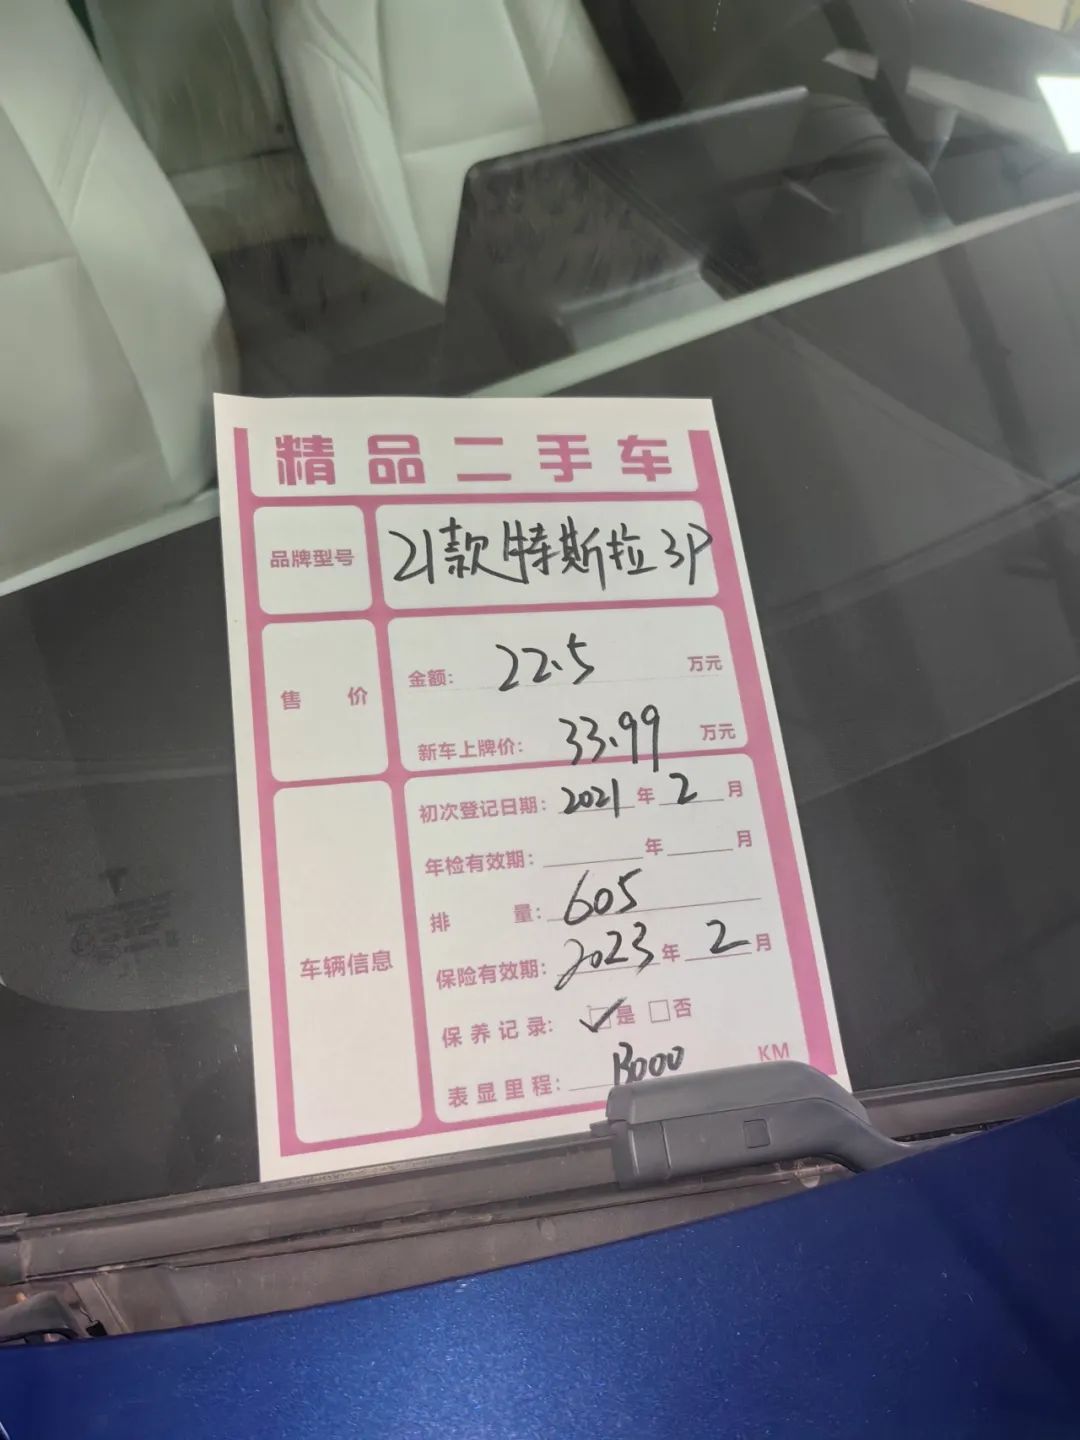 精品二手车
品牌型号 21款特斯拉3P
售价 金额: 22.5 万元
新车上牌价: 33.99 万元
车辆信息
初次登记日期: 2021年2月
年检有效期: 年 月
排量: 605
保险有效期: 2023年2月
保养记录: ✓是 □否
表显里程: 13000 KM